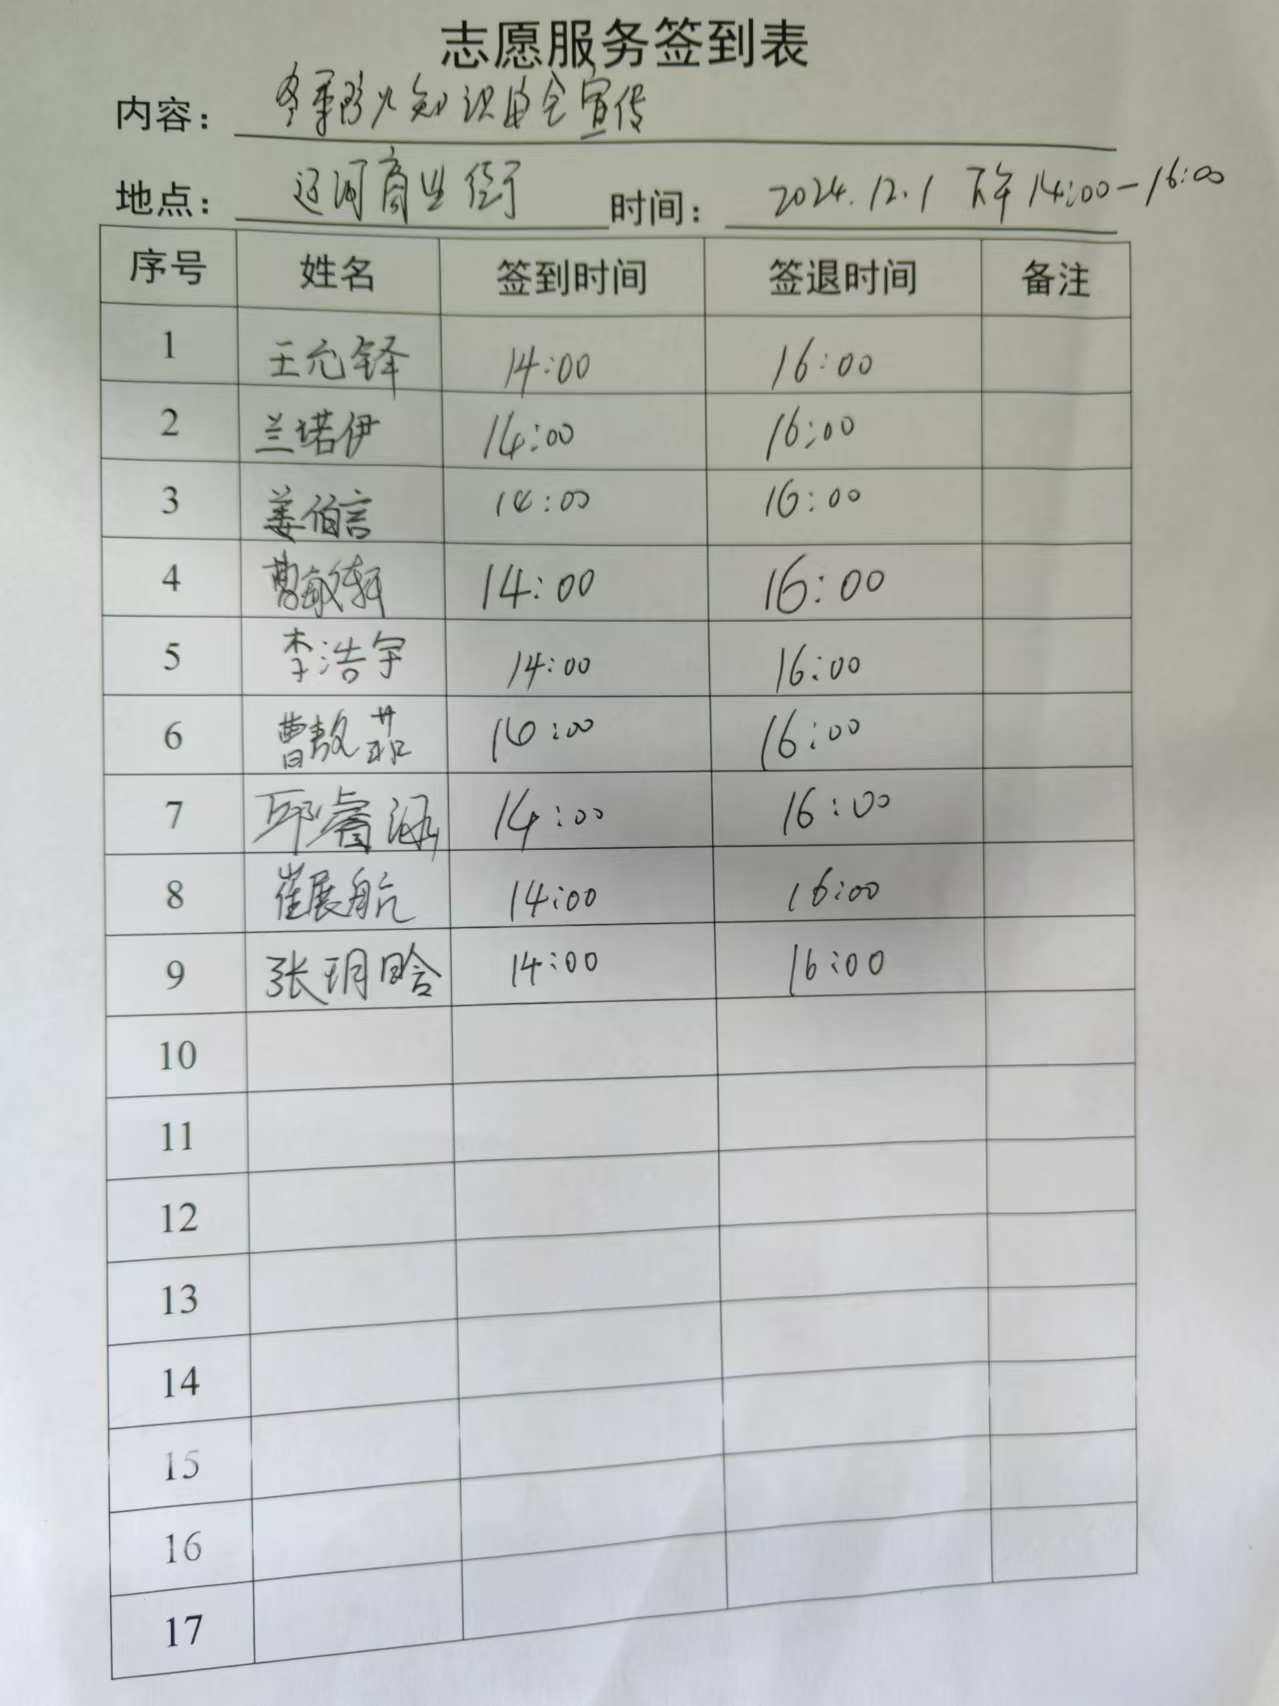 志愿服务签到表
内容： 冬季防火知识安全宣传
地点： 辽河商业街 时间： 2024.12.1 下午14:00-16:00
序号 姓名 签到时间 签退时间 备注
1 王允铎 14:00 16:00
2 兰塔伊 14:00 16:00
3 姜伯言 14:00 16:00
4 曹敏轩 14:00 16:00
5 李浩宇 14:00 16:00
6 曹 14:00 16:00
7 邱睿涵 14:00 16:00
8 崔展航 14:00 16:00
9 张玥晗 14:00 16:00
10
11
12
13
14
15
16
17